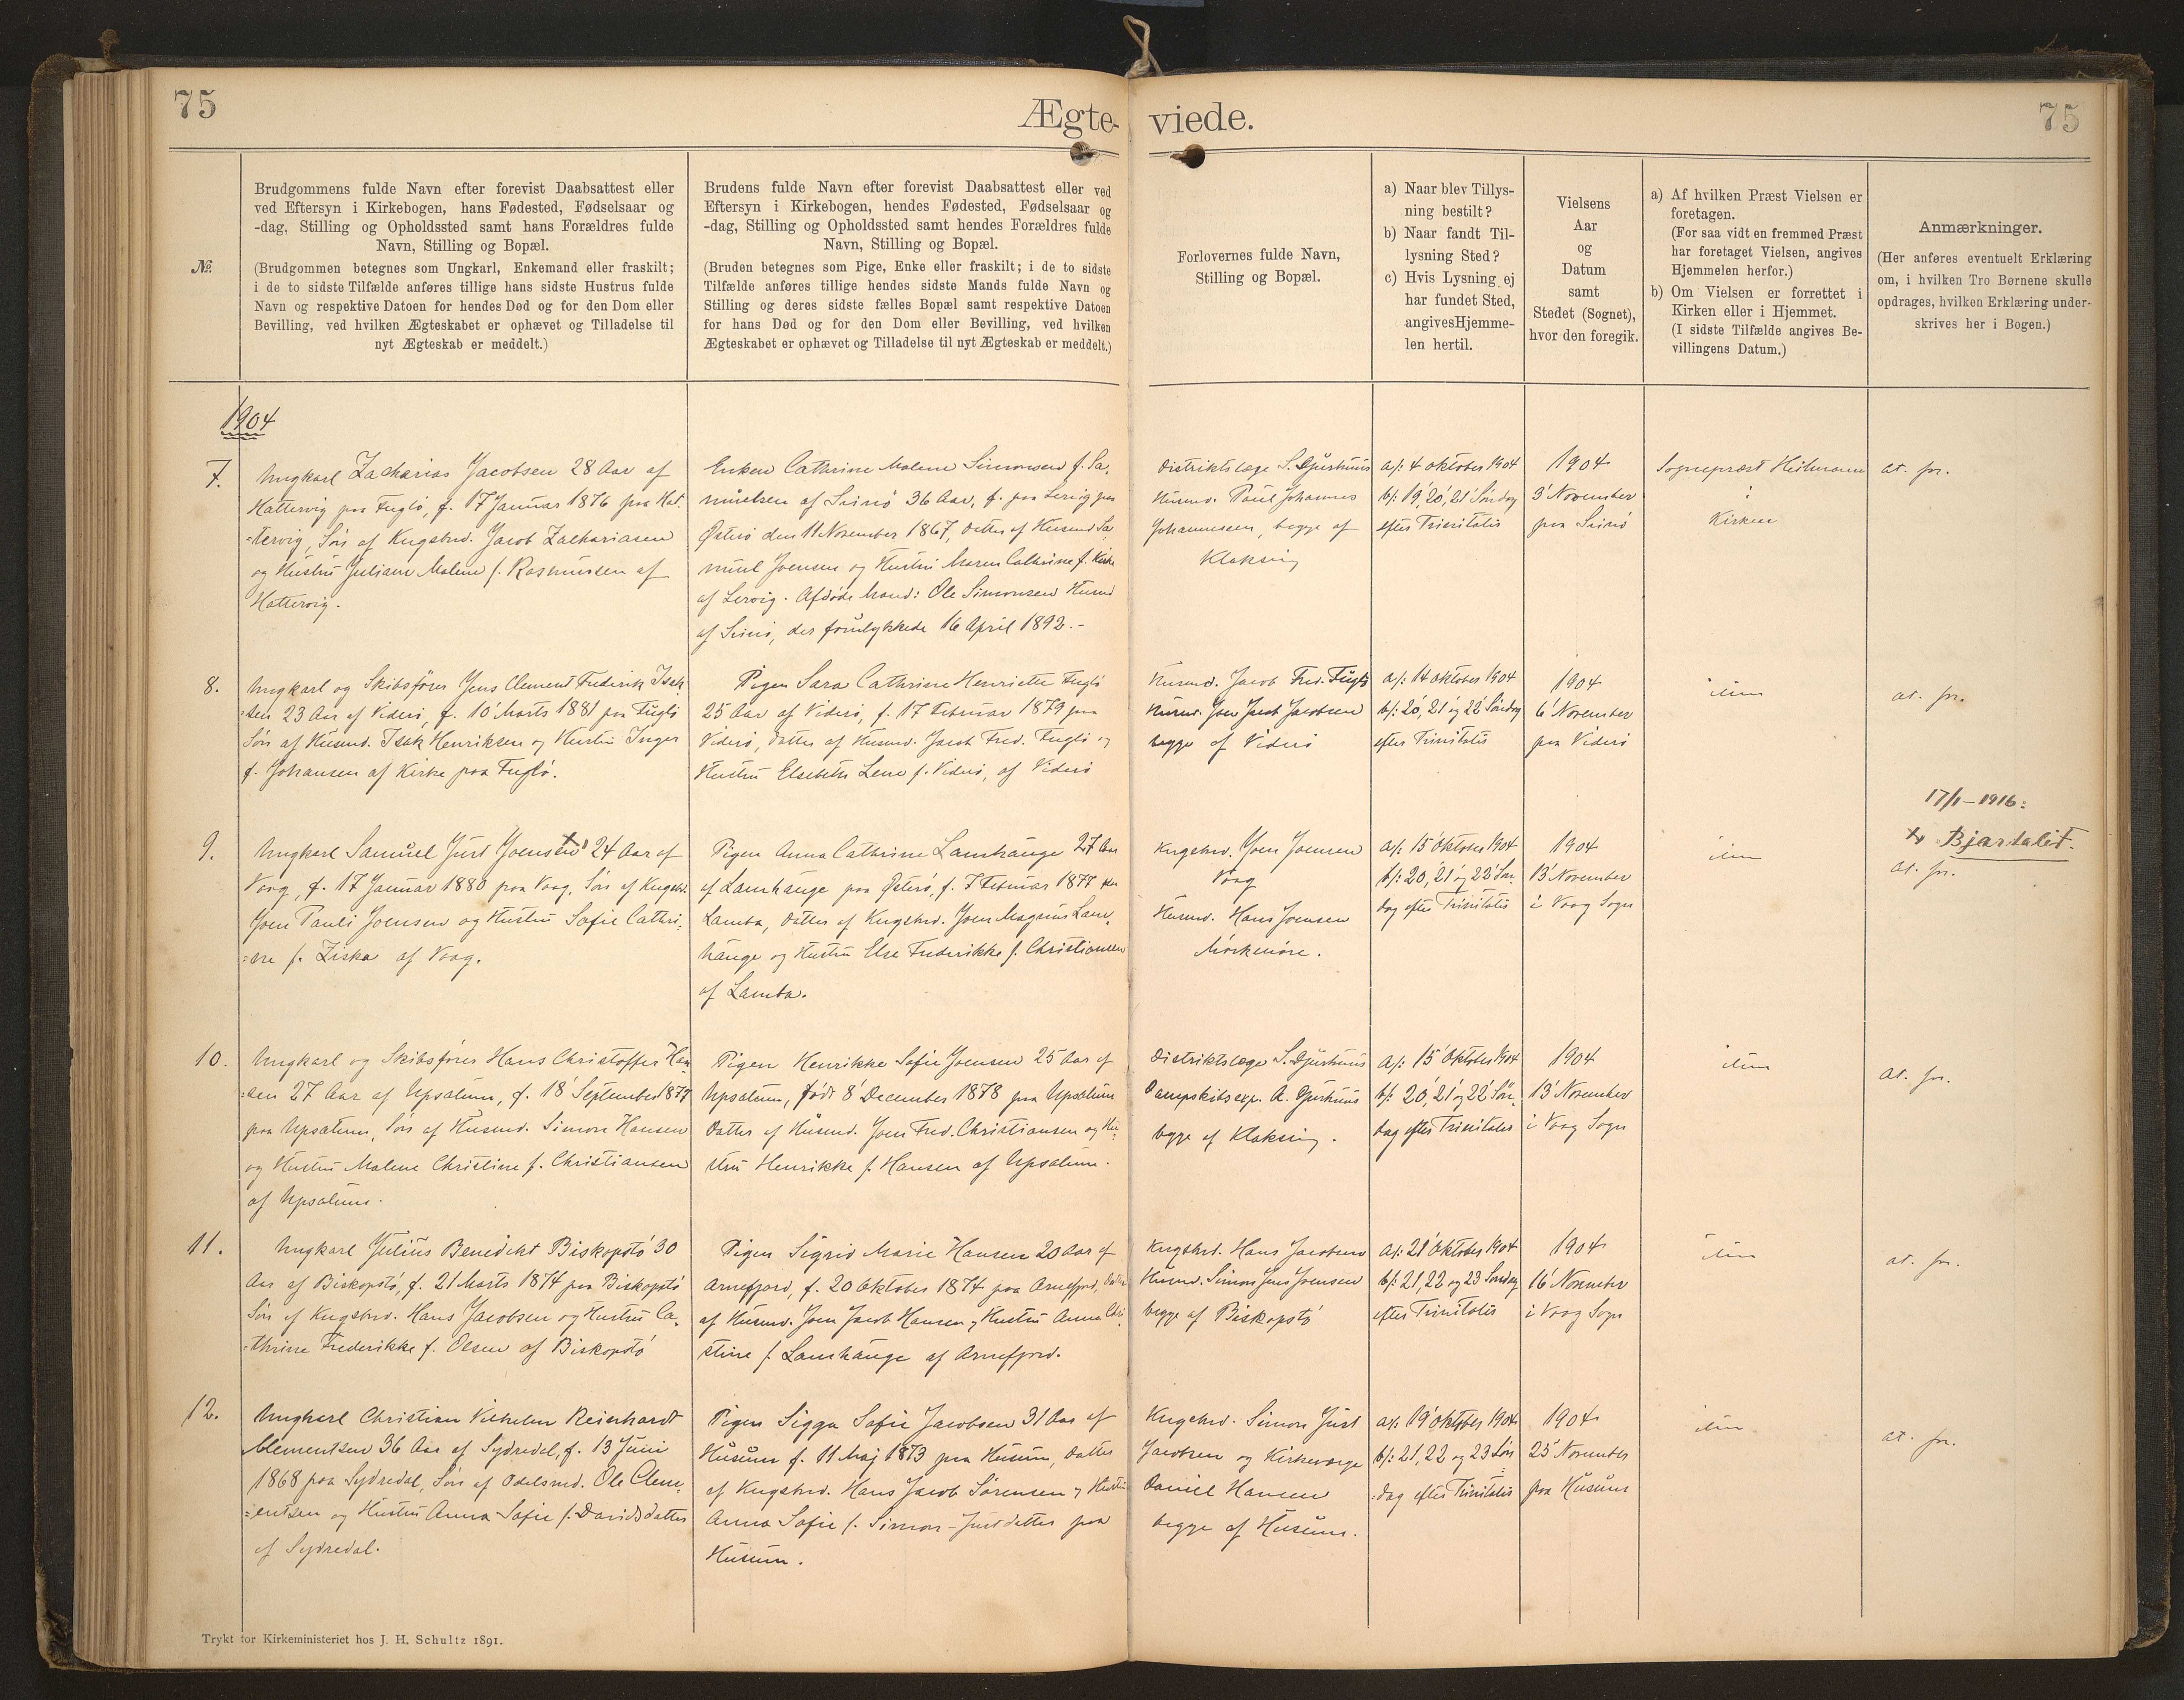 75
Ægte-
viede.
75
№.
Brudgommens fulde Navn efter forevist Daabsattest eller
ved Eftersyn i Kirkebogen, hans Fødested, Fødselsaar og
-dag, Stilling og Opholdssted samt hans Forældres fulde
Navn, Stilling og Bopæl.
(Brudgommen betegnes som Ungkarl, Enkemand eller fraskilt;
i de to sidste Tilfælde anføres tillige hans sidste Hustrus fulde
Navn og respektive Datoen for hendes Død og for den Dom eller
Bevilling, ved hvilken Ægteskabet er ophævet og Tilladelse til
nyt Ægteskab er meddelt.)
Brudens fulde Navn efter forevist Daabsattest eller ved
Eftersyn i Kirkebogen, hendes Fødested, Fødselsaar og
-dag, Stilling og Opholdssted samt hendes Forældres fulde
Navn, Stilling og Bopæl.
(Bruden betegnes som Pige, Enke eller fraskilt; i de to sidste
Tilfælde anføres tillige hendes sidste Mands fulde Navn og
Stilling og deres sidste fælles Bopæl samt respektive Datoen
for hans Død og for den Dom eller Bevilling, ved hvilken
Ægteskabet er ophævet og Tilladelse til nyt Ægteskab er meddelt.)
Forlovernes fulde Navn,
Stilling og Bopæl.
a) Naar blev Tillys-
ning bestilt?
b) Naar fandt Til-
lysning Sted?
c) Hvis Lysning ej
har fundet Sted,
angives Hjemme-
len hertil.
Vielsens
Aar
og
Datum
samt
Stedet (Sognet),
hvor den foregik.
a) Af hvilken Præst Vielsen er
foretagen.
(For saa vidt en fremmed Præst
har foretaget Vielsen, angives
Hjemmelen herfor.)
b) Om Vielsen er forrettet i
Kirken eller i Hjemmet.
(I sidste Tilfælde angives Be-
villingens Datum.)
Anmærkninger.
(Her anføres eventuelt Erklæring
om, i hvilken Tro Børnene skulle
opdrages, hvilken Erklæring under-
skrives her i Bogen.)
1904
7.
Ungkarl Zacharias Jacobsen 28 Aar af
Hattervig paa Fuglø, f. 17 Januar 1876 paa Hat-
=tervig, Søn af Kngsbnd. Jacob Zachariasen
og Hustru Juliane Malene f. Rasmussen af
Hattervig.
Enken Cathrine Malene Simonsen f. Sa-
muelsen af Svinø 36 Aar, f. paa Lervig paa
Østerø den 11 November 1867, Datter af Husmd Sa-
muel Joensen og Hustru Maren Cathrine f. Kirke
af Lervig. Afdøde Mand: Ole Simonsen Husmd
af Svinø, der forulykkede 16 April 1892.-
Distriktslæge S. Djurhuus
Husmd. Paul Johannes
Johannessen, begge af
Klaksvig
a/: 4 oktober 1904
b/: 19', 20', 21' Søndag
efter Trinitatis
1904
3' November
paa Svinø
Sognepræst Heilmann
i
Kirken
at. fr.
8.
Ungkarl og Skibsfører Jens Clement Frederik Isak-
=sen 23 Aar af Viderø, f. 10' Marts 1881 paa Fuglø
Søn af Husmd. Isak Henriksen og Hustru Inger
f. Johansen af Kirke paa Fuglø.
Pigen Sara Cathrine Henriette Fuglø
25 Aar af Viderø, f. 17 Februar 1879 paa
Viderø, Datter af Husmd. Jacob Fred. Fuglø og
Hustru Elsebeth Lene f. Viderø, af Viderø
Husmd. Jacob Fred. Fuglø
Husmd. Joen Jacob Jacobsen
begge af Viderø
a/: 14 oktober 1904
b/: 20', 21' og 22' Søndag
efter Trinitatis
1904
6' November
paa Viderø
item
at. fr.
9.
Ungkarl Samuel Just Joensen x) 24 Aar af
Vaag, f. 17 Januar 1880 paa Vaag, Søn af Kngsbd.
Joen Pauli Joensen og Hustru Sofie Cathri-
=ne f. Ziska af Vaag.
Pigen Anna Cathrine Lamhauge 27 Aar
af Lamhauge paa Østerø, f. 7 Februar 1877 paa
Lamba, Datter af Kngsbnd. Joen Magnus Lam-
hauge og Hustru Else Frederikke f. Christiansen
af Lamba.
Kngsbnd. Joen Joensen
Vaag
Husmd. Hans Joensen
Mørkenøre.
a/: 15' Oktober 1904
b/: 20', 21' og 22' Søn-
dag efter Trinitatis
1904
13' November
i Vaag Sogn
item
17/1-1916:
x) Bjartalid.
at. fr.
10.
Ungkarl og Skibsfører Hans Christoffer Han-
=sen 27 Aar af Upsalum, f. 18' September 1877
paa Upsalum, Søn af Husmd. Simon Hansen
og Hustru Malene Christine f. Christiansen
af Upsalum.
Pigen Henrikke Sofie Joensen 25 Aar af
Upsalum, født 8' December 1878 paa Upsalum
Datter af Husmd. Joen Fred. Christiansen og Hu-
stru Henrikke f. Hansen af Upsalum.
Distriktslæge S. Djurhuus
Dampskibsexp. A. Djurhuus
begge af Klaksvig.
a/: 15' Oktober 1904
b/: 20', 21' og 22' Søn-
dag efter Trinitatis
1904
13' November
i Vaag Sogn
item
at. fr.
11.
Ungkarl Julius Benedikt Biskopstø 30
Aar af Biskopstø, f. 21 Marts 1874 paa Biskopstø
Søn af Kngsbnd. Hans Jacobsen og Hustru Ca-
=thrine Frederikke f. Olsen af Biskopstø
Pigen Sigrid Marie Hansen 20 Aar af
Arnefjord, f. 20 Oktober 1874 paa Arnefjord, Datter
af Husmd. Joen Jacob Hansen og Hustru Anna Chri-
stine f. Lamhauge af Arnefjord.
Kngsbnd. Hans Jacobsen
Husmd. Simon Jens Joensen
begge af Biskopstø
a/: 21' Oktober 1904
b/: 21, 22 og 23 Søndag
efter Trinitatis
1904
16' November
i Vaag Sogn
item
at. fr.
12.
Ungkarl Christian Vilhelm Reinhardt
Clementsen 36 Aar af Sydredal, f. 13 Juni
1868 paa Sydredal, Søn af Odelsmd. Ole Clem-
=entsen og Hustru Anna Sofie f. Davidsdatter
af Sydredal.
Pigen Sigga Sofie Jacobsen 31 Aar af
Husum f. 11 Maj 1873 paa Husum, Datter
af Kngsbnd. Hans Jacob Sørensen og Hustru
Anna Sofie f. Simon-Justdatter paa
Husum.
Kngsbnd. Simon Just
Jacobsen og Kirkeværge
Daniel Hansen
begge af Husum.
a/: 19' Oktober 1904
b/: 21, 22 og 23 Søn
=dag efter Trinitatis
1904
25' November
paa Husum
item
at. fr.
Trykt for Kirkeministeriet hos J. H. Schultz 1891.